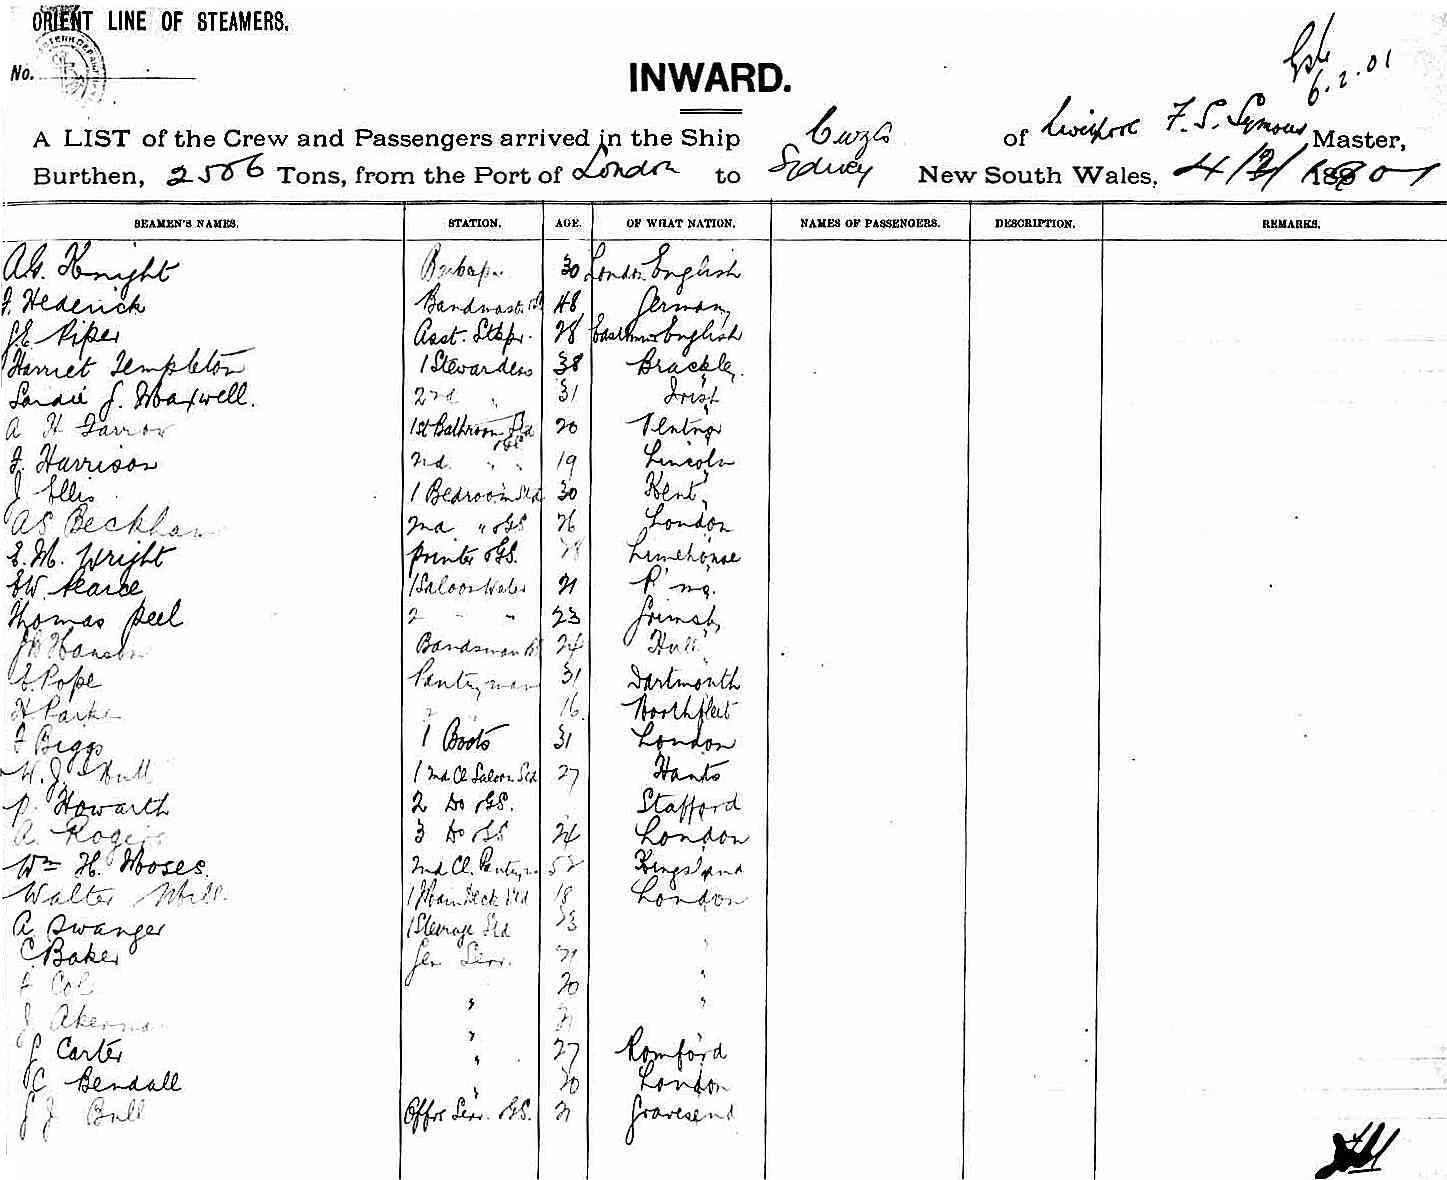 ORIENT LINE OF STEAMERS.
No.
6.2.01
INWARD.
A LIST of the Crew and Passengers arrived in the Ship Cuzco of Liverpool F. S. Symons Master,
Burthen, 2506 Tons, from the Port of London to Sydney New South Wales, 4/2/1901
SEAMEN'S NAMES. STATION. AGE. OF WHAT NATION. NAMES OF PASSENGERS. DESCRIPTION. REMARKS.
A.G. Knight 30 London English
F. Hederick Bandmastr 48 German
Piper Asst. Stkpr. 28 English
Harriet Templeton 1 Stewardess 38 Brackley
J. Maxwell. 2nd " 31 Irish
A H Farrow 1st Bathroom Std 20 Ventnor
F. Harrison 2nd " " 19 Lincoln
J Ellis 1 Bedroom Std 30 Kent
AS Beckham 2nd " & GS 26 London
E. M. Wright printer & GS. 28 Limehouse
E.W. Pearce 1 Saloon Water 21
Thomas Peel 2 " " 23 Grimsby
Hanson Bandsman 24 Hull
E. Pope Pantryman 31 Dartmouth
H Parke 2 " 16 Northfleet
F Biggs 1 Boots 31 London
W. J. Hull 1 2nd Cl Saloon Std 27 Hants
P. Howarth 2 Do & GS. Stafford
A. Rogers 3 Do & GS 24 London
Wm H. Moses. 2nd Cl. Pantrym 52 Kingsland
Walter Mill. 1 Main Deck Std 18 London
A Swanger 1 Steerage Std 23
C Baker Gen Serv. 21 "
F Col " 20 "
J Akerman " 21 "
G Carter " 27 Romford
C Bendall " 20 London
J J Bull Offrs Serv. & GS. 21 Gravesend